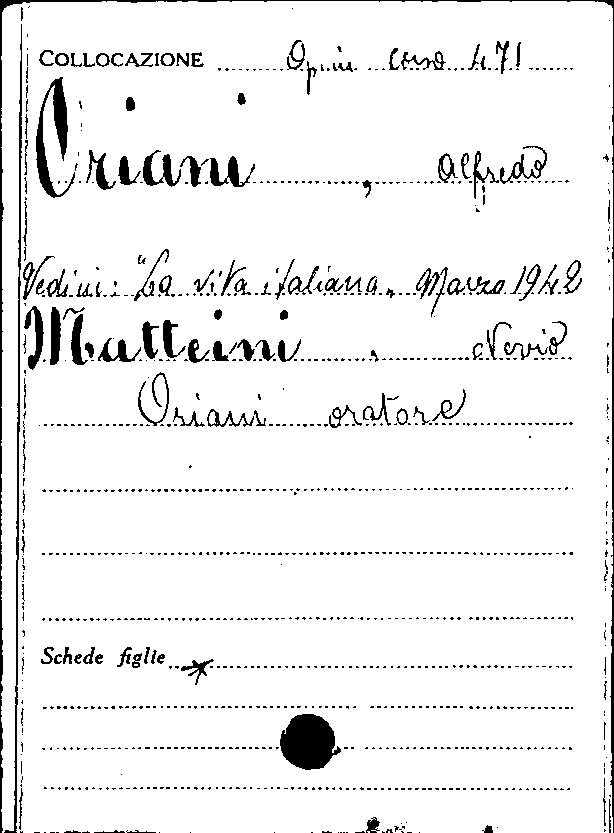 COLLOCAZIONE Opini corso 471
Oriani, Alfredo
Vedini: "La vita italiana„ Marzo 1942
Matteini, Nevio
Oriani oratore
Schede figlie